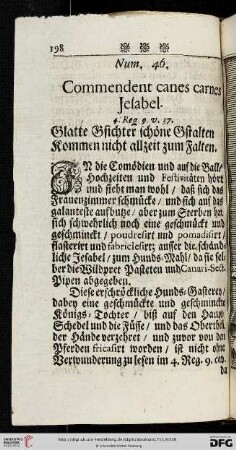 198
Num. 46.
Commendent canes carnes
Jesabel.
4. Reg. 9. v. 37.
Glatte Gsichter schöne Gstalten
Kommen nicht allzeit zum Falten.
IN die Comödien und auf die Ball/
Hochzeiten und Festivitäten hört
und sieht man wohl / daß sich das
Frauenzimmer schmücke / und sich auf das
galanteste aufbutze / aber zum Sterben hat
sich schwehrlich noch eine geschmückt und
geschminckt / poudrefirt und pomadisirt /
flastrirt und fabriclefirt; ausser die schänd-
liche Jesabel / zum Hunds-Mahl / da sie sel-
ber die Wildpret Pasteten und Canari-Sect-
Pipen abgegeben.
Diese erschröckliche Hunds-Gasterey /
dabey eine geschmückte und geschminckte
Königs-Tochter / biß auf den Haupt-
Schedel und die Füsse / und das Obertheil
der Hände verzehret / und zuvor von den
Pferden fricasirt worden / ist nicht ohne
Verwunderung zu lesen im 4. Reg. 9. cap.
da